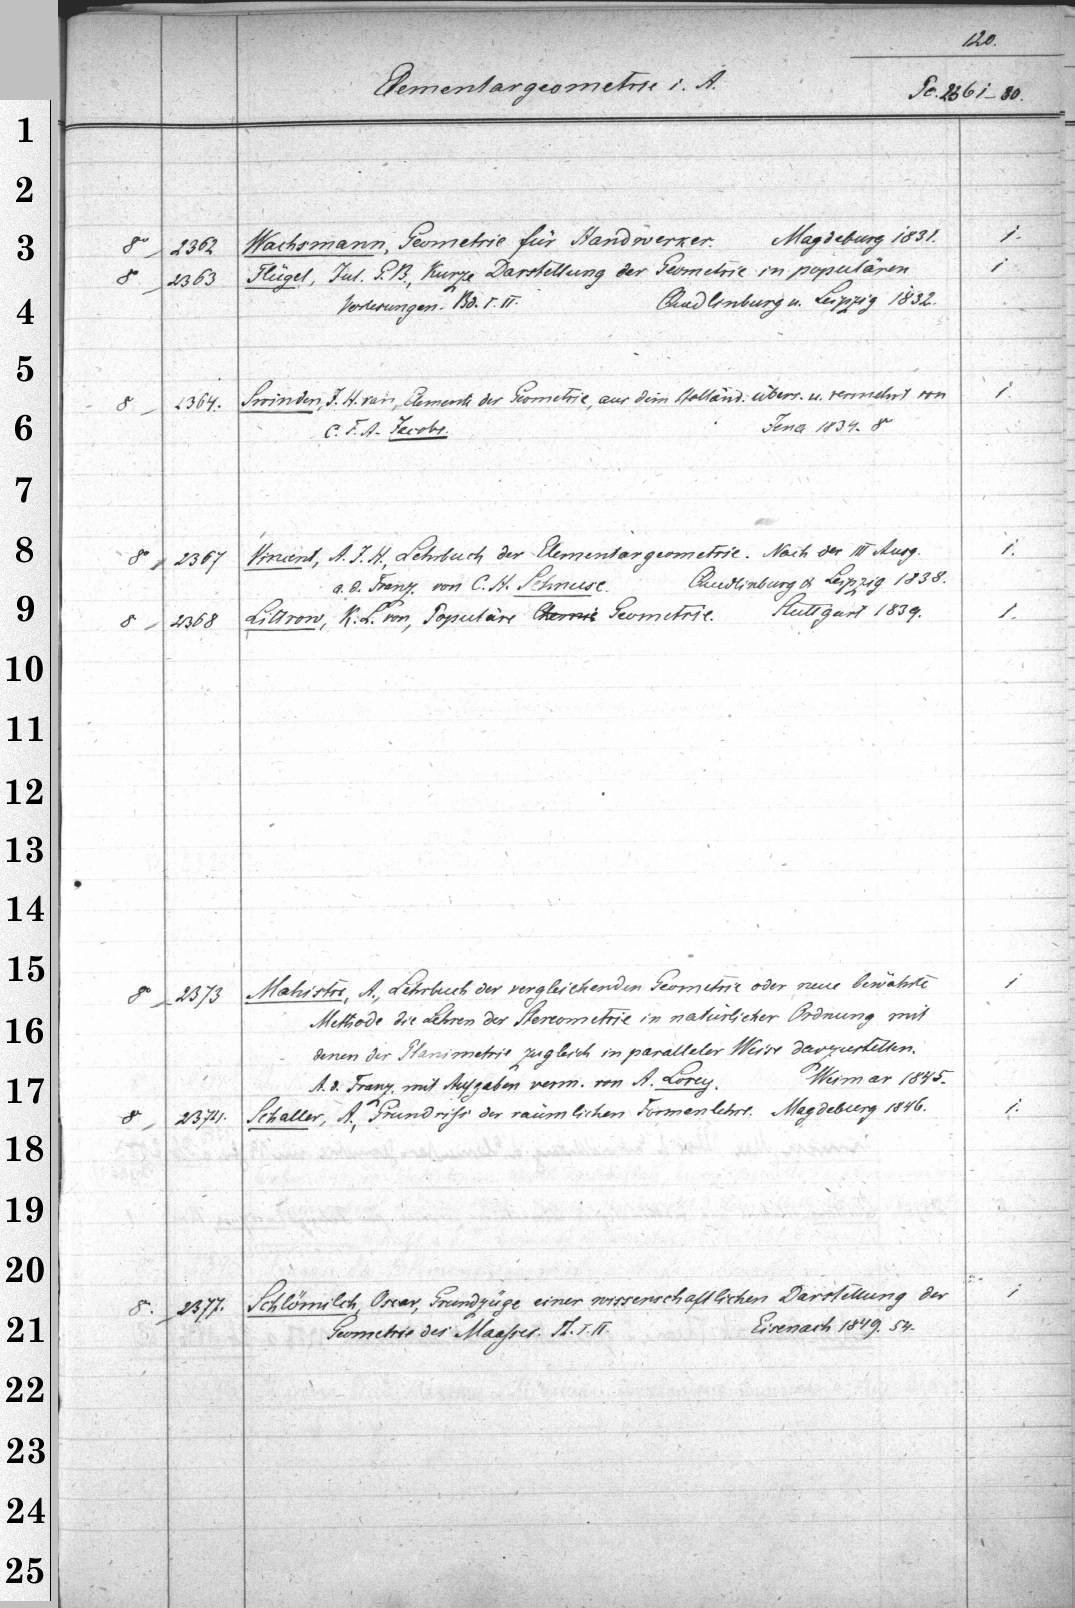 120.
Elementargeometrie i. A.
Pc. 2361-80.
1
2
3
4
5
6
7
8
9
10
11
12
13
14
15
16
17
18
19
20
21
22
23
24
25
8° 2362 Wachsmann, Geometrie für Handwerker. Magdeburg 1831. 1.
8 2363 Flügel, Jul. G. B., Kurze Darstellung der Geometrie in populären 1
Vorlesungen. Bd. I. II. Quedlinburg u. Leipzig 1832.
8 2364. Swinden, J. H. van, Elemente der Geometrie, aus dem Holländ. übers. u. vermehrt von 1.
C. F. A. Jacobi. Jena 1834. 8
8° 2367 Vincent, A. J. H., Lehrbuch der Elementargeometrie. Nach der III Ausg. 1.
a. d. Franz. von C. H. Schnuse. Quedlinburg & Leipzig 1838.
8 2368 Littrow, K. L. von, Populäre Chemie Geometrie. Stuttgart 1839. 1.
8° 2373 Mahistre, A., Lehrbuch der vergleichenden Geometrie oder neue bewährte 1
Methode die Lehren der Stereometrie in natürlicher Ordnung mit
denen der Planimetrie zugleich in paralleler Weise darzustellen.
A. d. Franz. mit Aufgaben verm. von A. Lorey. Weimar 1845.
8 2374. Schaller, A., Grundriß der räumlichen Formenlehre. Magdeburg 1846. 1.
8. 2377. Schlömilch, Oscar, Grundzüge einer wissenschaftlichen Darstellung der 1
Geometrie des Maaßes. Th. I. II. Eisenach 1849. 54.